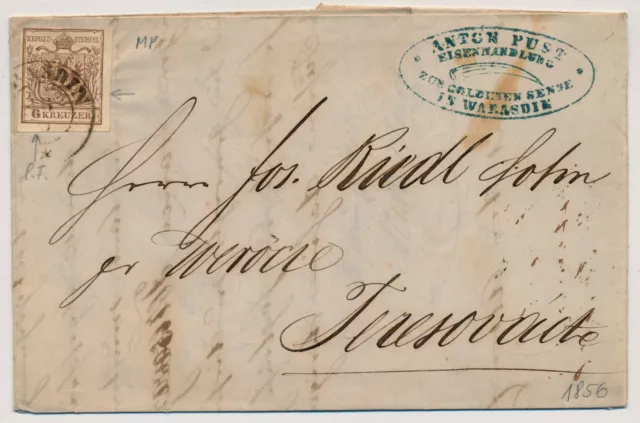 KKPOST-STEMPEL
6 KREUZER
MP
P.F.
ANTON PUST
EISENHANDLUNG
ZUR GOLDENEN SENSE
IN WARASDIN
Herrn Jos. Riedl Sohn
pr Weröcze
Teresovácz
1856